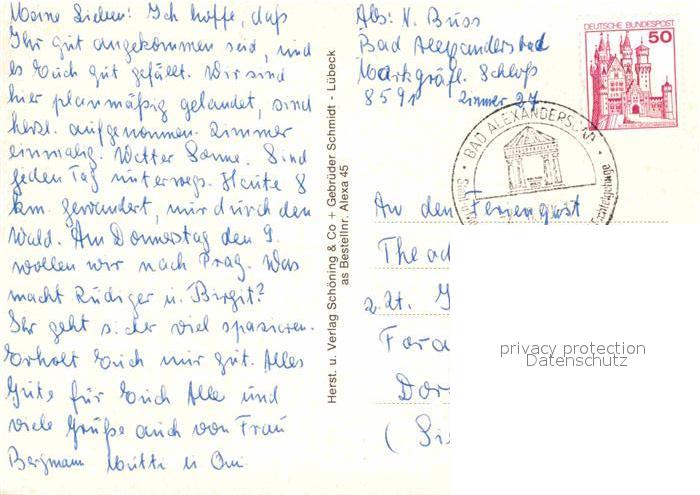 Meine Lieben! Ich hoffe, daß
Ihr gut angekommen seid, und
es Euch gut gefällt. Wir sind
hier planmäßig gelandet, sind
herzl. aufgenommen. Zimmer
einmalig. Wetter Sonne. Sind
jeden Tag unterwegs. Heute 8
km. gewandert, nur durch den
Wald. Am Donnerstag den 9.
wollen wir nach Prag. Was
macht Rüdiger u. Birgit?
Ihr geht sicher viel spazieren.
Erholt Euch nur gut. Alles
Gute für Euch Alle und
viele Grüße auch von Frau
Bergmann Mutti u. Omi
Herst. u. Verlag Schöning & Co + Gebrüder Schmidt - Lübeck
as Bestellnr. Alexa 45
Abs: N. Buss
Bad Alexandersbad
Markgräfl. Schloß
8591 Zimmer 27
DEUTSCHE BUNDESPOST
50
BAD ALEXANDERSBAD
An den Feriengast
Thead
z. Zt.
Fara
Dor
privacy protection
Datenschutz